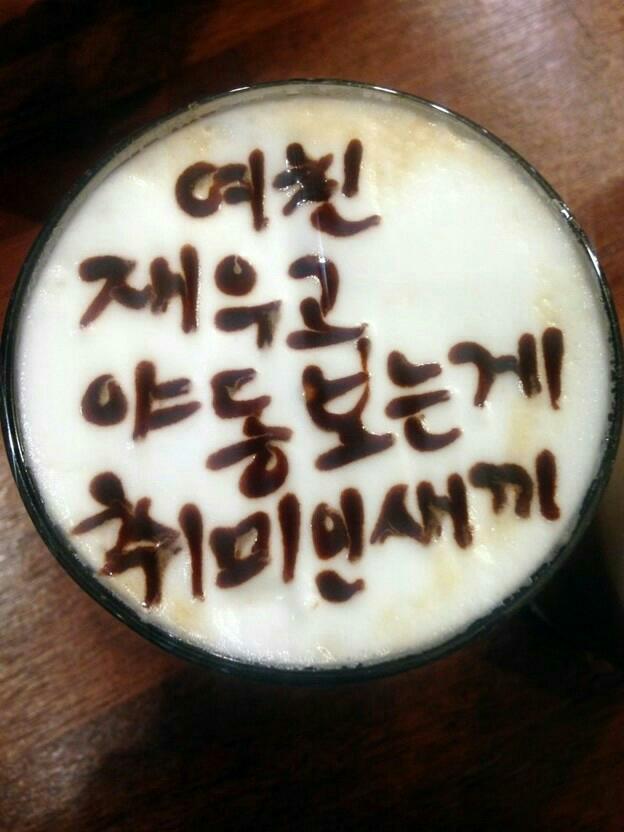 여친
재우고
야동보는게
취미인새끼